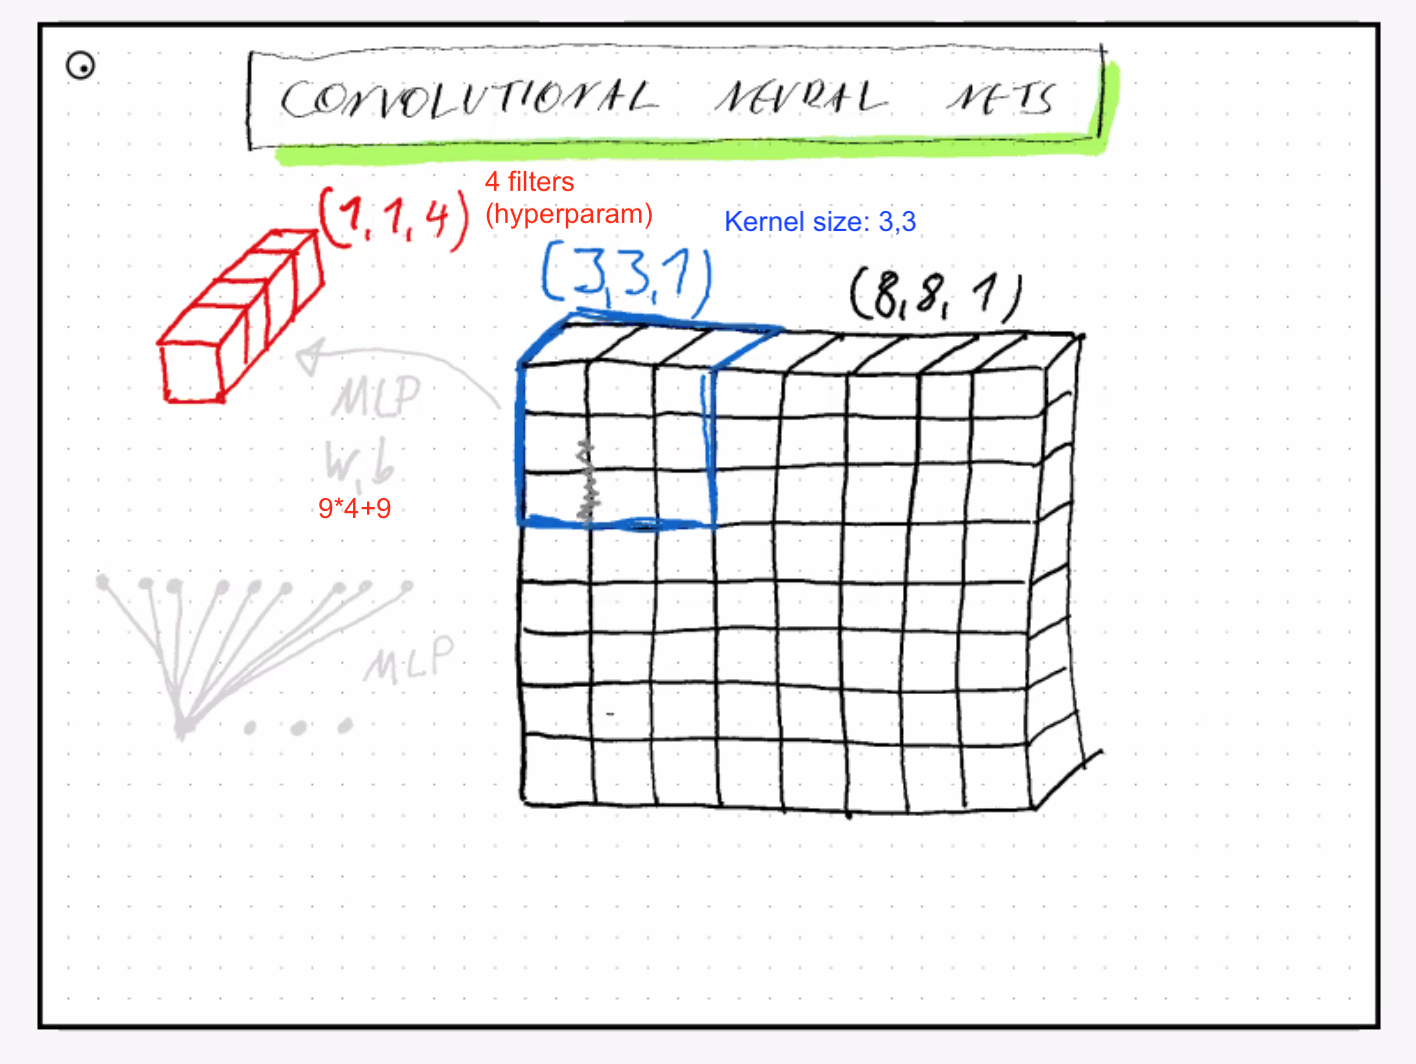 CONVOLUTIONAL NEURAL NETS
(1,1,4)
4 filters
(hyperparam)
Kernel size: 3,3
(3,3,1)
(8,8,1)
MLP
W,b
9*4+9
MLP